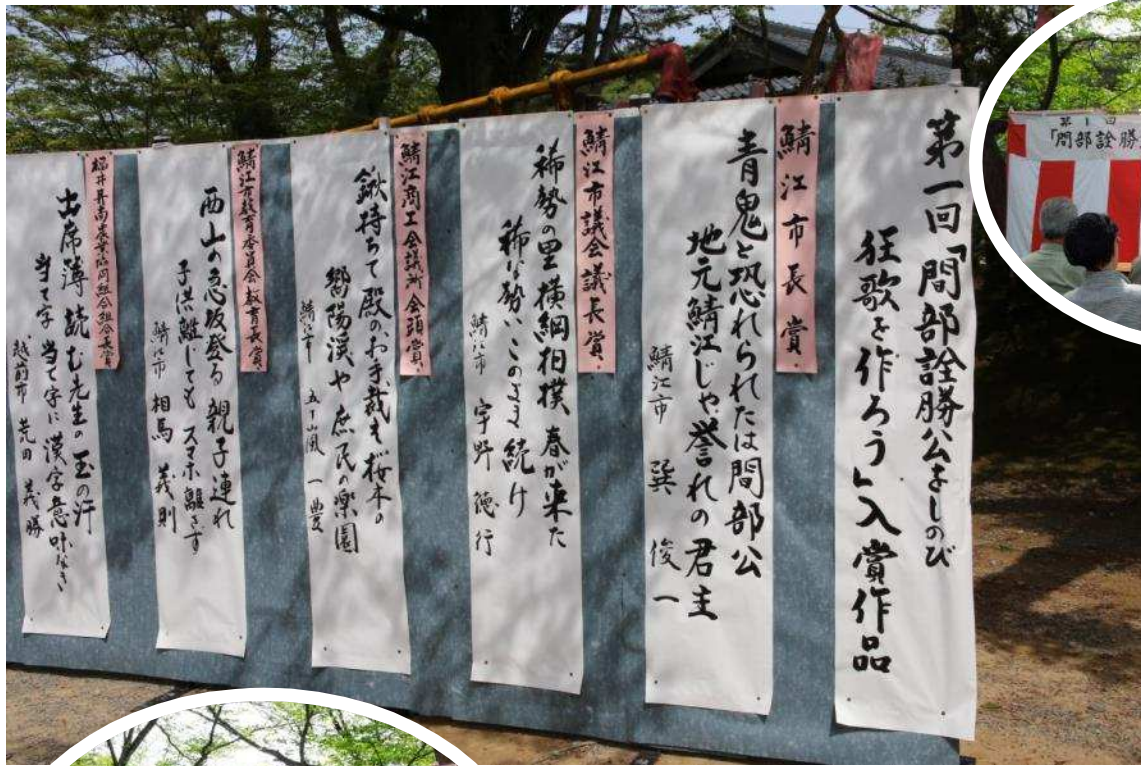 第一回「間部詮勝公をしのび
狂歌を作ろう」入賞作品
鯖江市長賞
青鬼と恐れられたは間部公
地元鯖江じゃ誉れの君主
鯖江市 巽 俊一
鯖江市議会議長賞
稀勢の里横綱相撲 春が来た
稀な勢いこのまま続け
鯖江市 宇野 徳行
鯖江商工会議所会頭賞
鍬持ちて殿のお手栽も桜木の
嚮陽渓や庶民の楽園
鯖江市 五十嵐 一豊
鯖江市教育委員会教育長賞
西山の急坂登る 親子連れ
子供離しても スマホ離さず
鯖江市 相馬 義則
福井県丹南農業協同組合組合長賞
出席簿 読む先生の玉の汗
当て字 当て字に 漢字意味なき
越前市 荒田 義勝
第1回
「間部詮勝